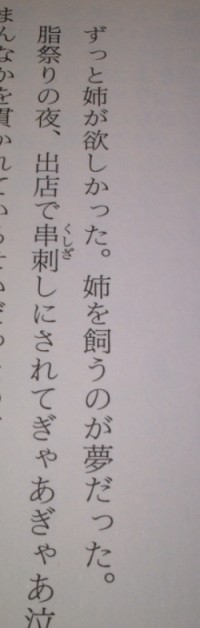 ずっと姉が欲しかった。姉を飼うのが夢だった。
脂祭りの夜、出店で串刺しにされてぎゃあぎゃあ泣
まんなかを貫かれている